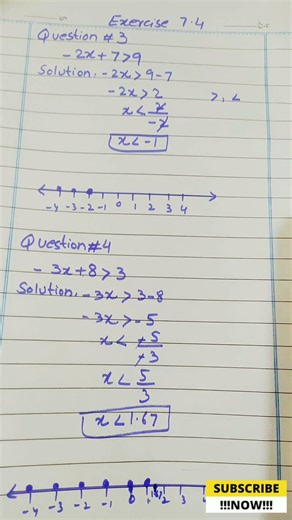 Exercise 7.4
Question #3
-2x+7>9
Solution:- -2x>9-7
-2x>2 >, <
x< 2/-2
x<-1
-4 -3 -2 -1 0 1 2 3 4
Question#4
- 3x+8>3
Solution:- -3x>3-8
-3x>-5
x< -5/-3
x< 5/3
x<1.67
-4 -3 -2 -1 0 1 2 3
SUBSCRIBE
!!!NOW!!!